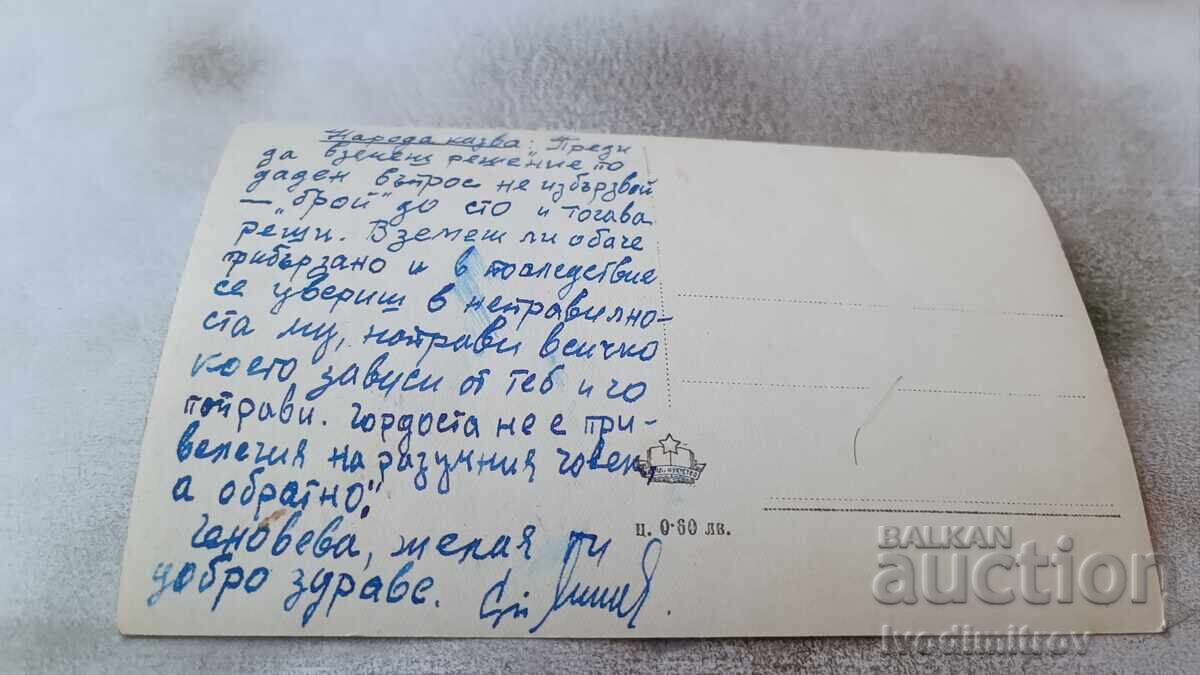 Народа казва: „Преди
да вземеш решение по
даден въпрос не избързвай
— „брой" до сто и тогава
реши. Вземеш ли обаче
прибързано и в последствие
се увериш в неправилно-
ста му, направи всичко
което зависи от теб и го
поправи. Гордоста не е при-
велегия на разумния човек,
а обратно."
Геновева, желая ти
добро здраве.
ц. 0·60 лв.
BALKAN
auction
Ivodimitrov